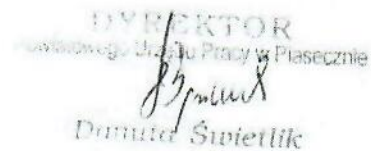 DYREKTOR
Powiatowego Urzędu Pracy w Piasecznie
Danuta Świetlik